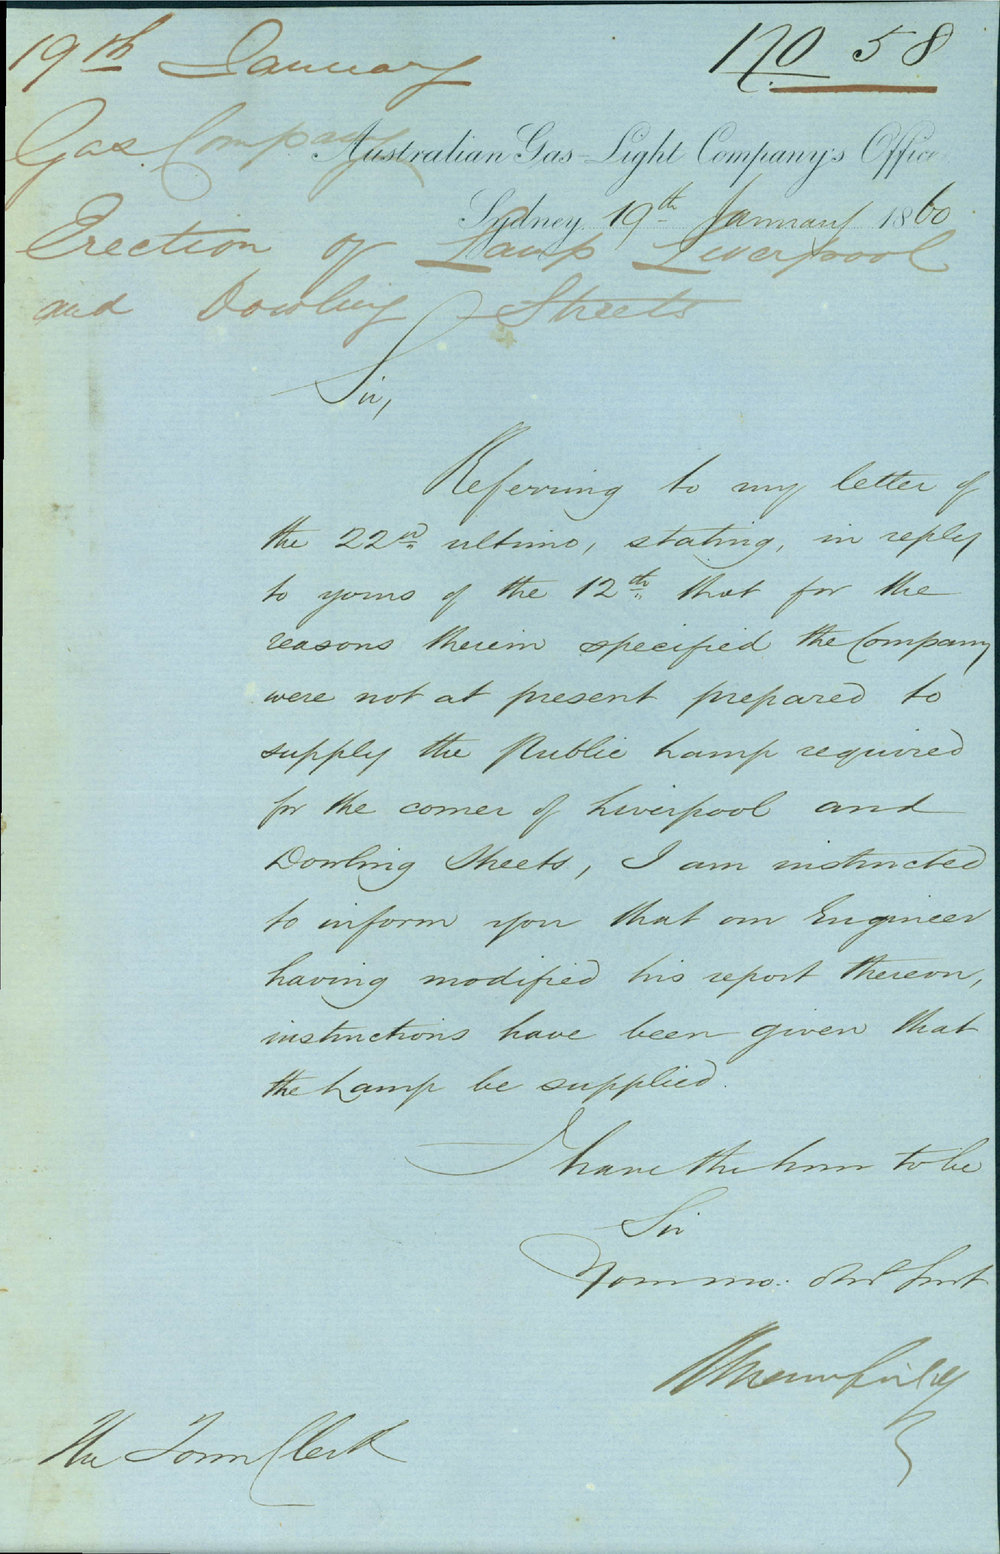 19th January
No 58
Gas Company
Australian Gas-Light Company's Office
Sydney 19th January 1860
Erection of Lamp Liverpool
and Dowling Streets
Sir,
Referring to my letter of
the 22nd ultimo, stating, in reply
to yours of the 12th. that for the
reasons therein specified the Company
were not at present prepared to
supply the Public Lamp required
for the corner of Liverpool and
Dowling Streets, I am instructed
to inform you that our Engineer
having modified his report thereon,
instructions have been given that
the Lamp be supplied.
I have the honor to be
Sir
Your mo: obt Servt
The Town Clerk